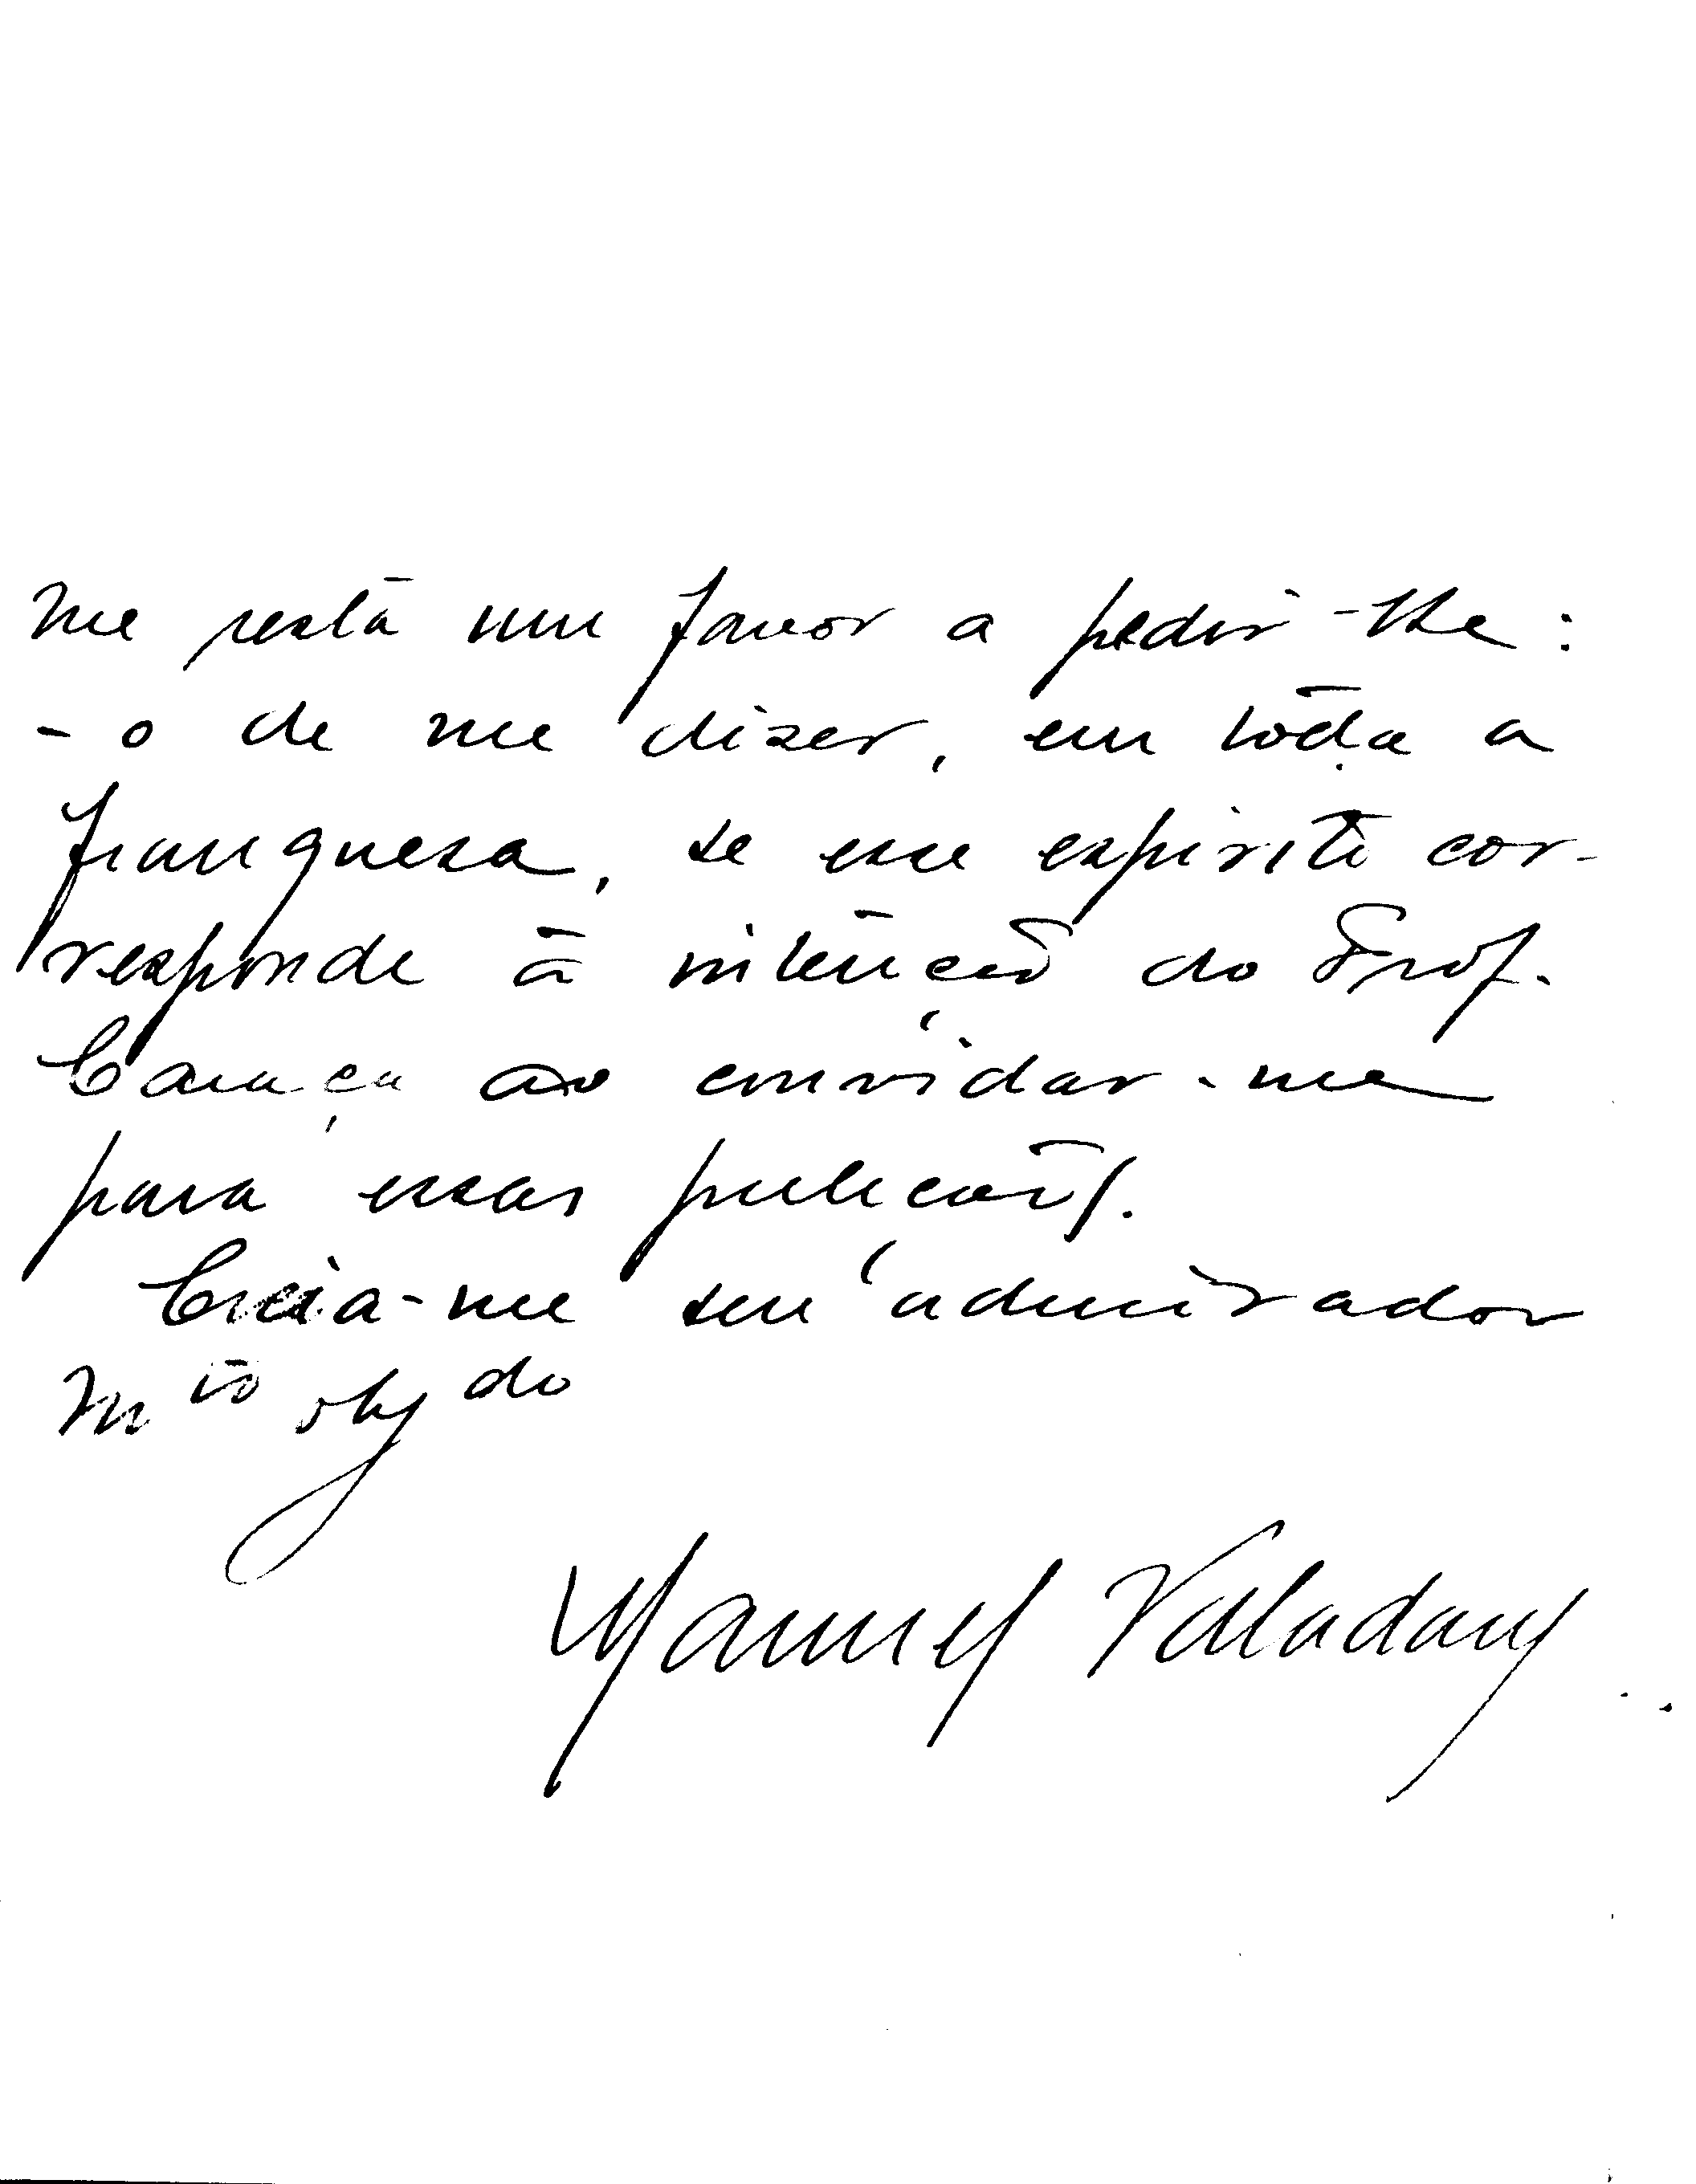 me resta um favor a pedir-lhe:
- o de me dizer, em toda a
franqueza, se esse espirito cor-
responde à intenção do Prof.
Caraça ao convidar-me
para essas prelecções.
Creia-me seu admirador
Mto obgdo
Manuel Valadares